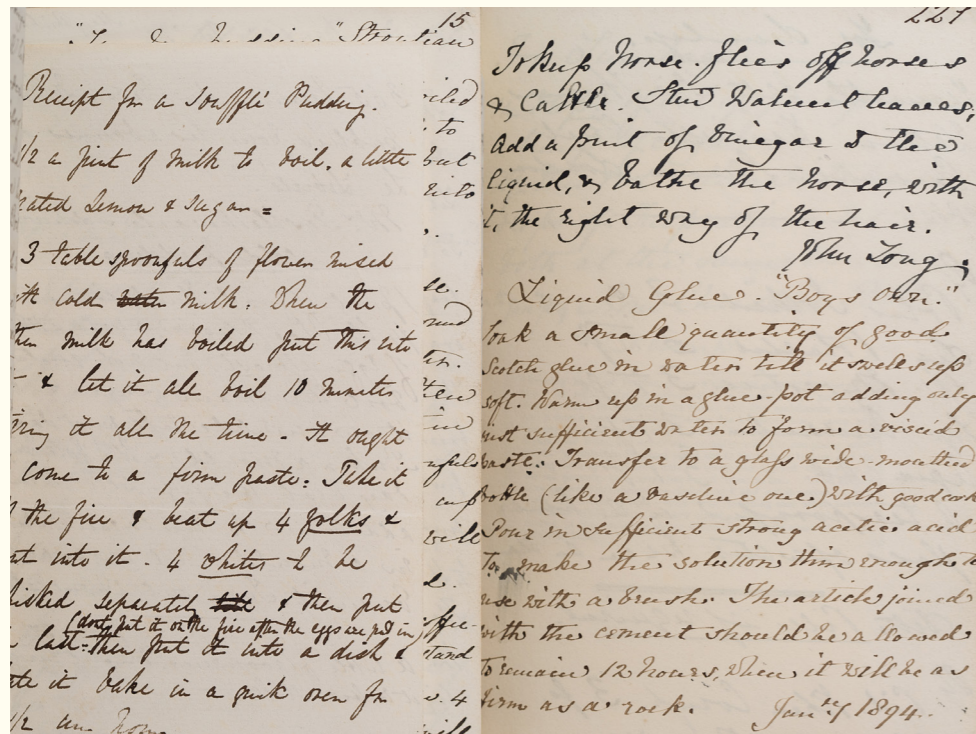 15
Strontian
Receipt for a Soufflé Pudding.
1/2 a pint of milk to boil, a little
rated Lemon & Sugar =
3 table spoonfuls of flour mixed
th cold milk. When the
milk has boiled put this into
& let it all boil 10 minutes
ring it all the time - It ought
come to a firm paste: Take it
the fire & beat up 4 yolks &
it into it. 4 whites to be
isked separately & then put
(dont put it on the fire after the eggs are put in)
last: then put it into a dish &
bake in a quick oven for
1/2 an hour
iled
to
but
into
se.
ter.
in
nfuls
cup
will
d.
stand
4
will
221
To Keep Horse-flies off horses
& Cattle. Stew Walnut leaves,
add a pint of vinegar to the
liquid, & bathe the horse, with
it, the right way of the hair.
John Long.
Liquid Glue. "Boys Own."
Soak a small quantity of good
Scotch glue in water till it swells up
soft. Warm up in a glue-pot adding only
just sufficient water to form a viscid
paste. Transfer to a glass wide-mouthed
bottle (like a vaseline one.) with good cork
Pour in sufficient strong acetic acid
To make the solution thin enough to
use with a brush. The article joined
with the cement should be allowed
to remain 12 hours, when it will be as
firm as a rock.
Jan:ry 1894.